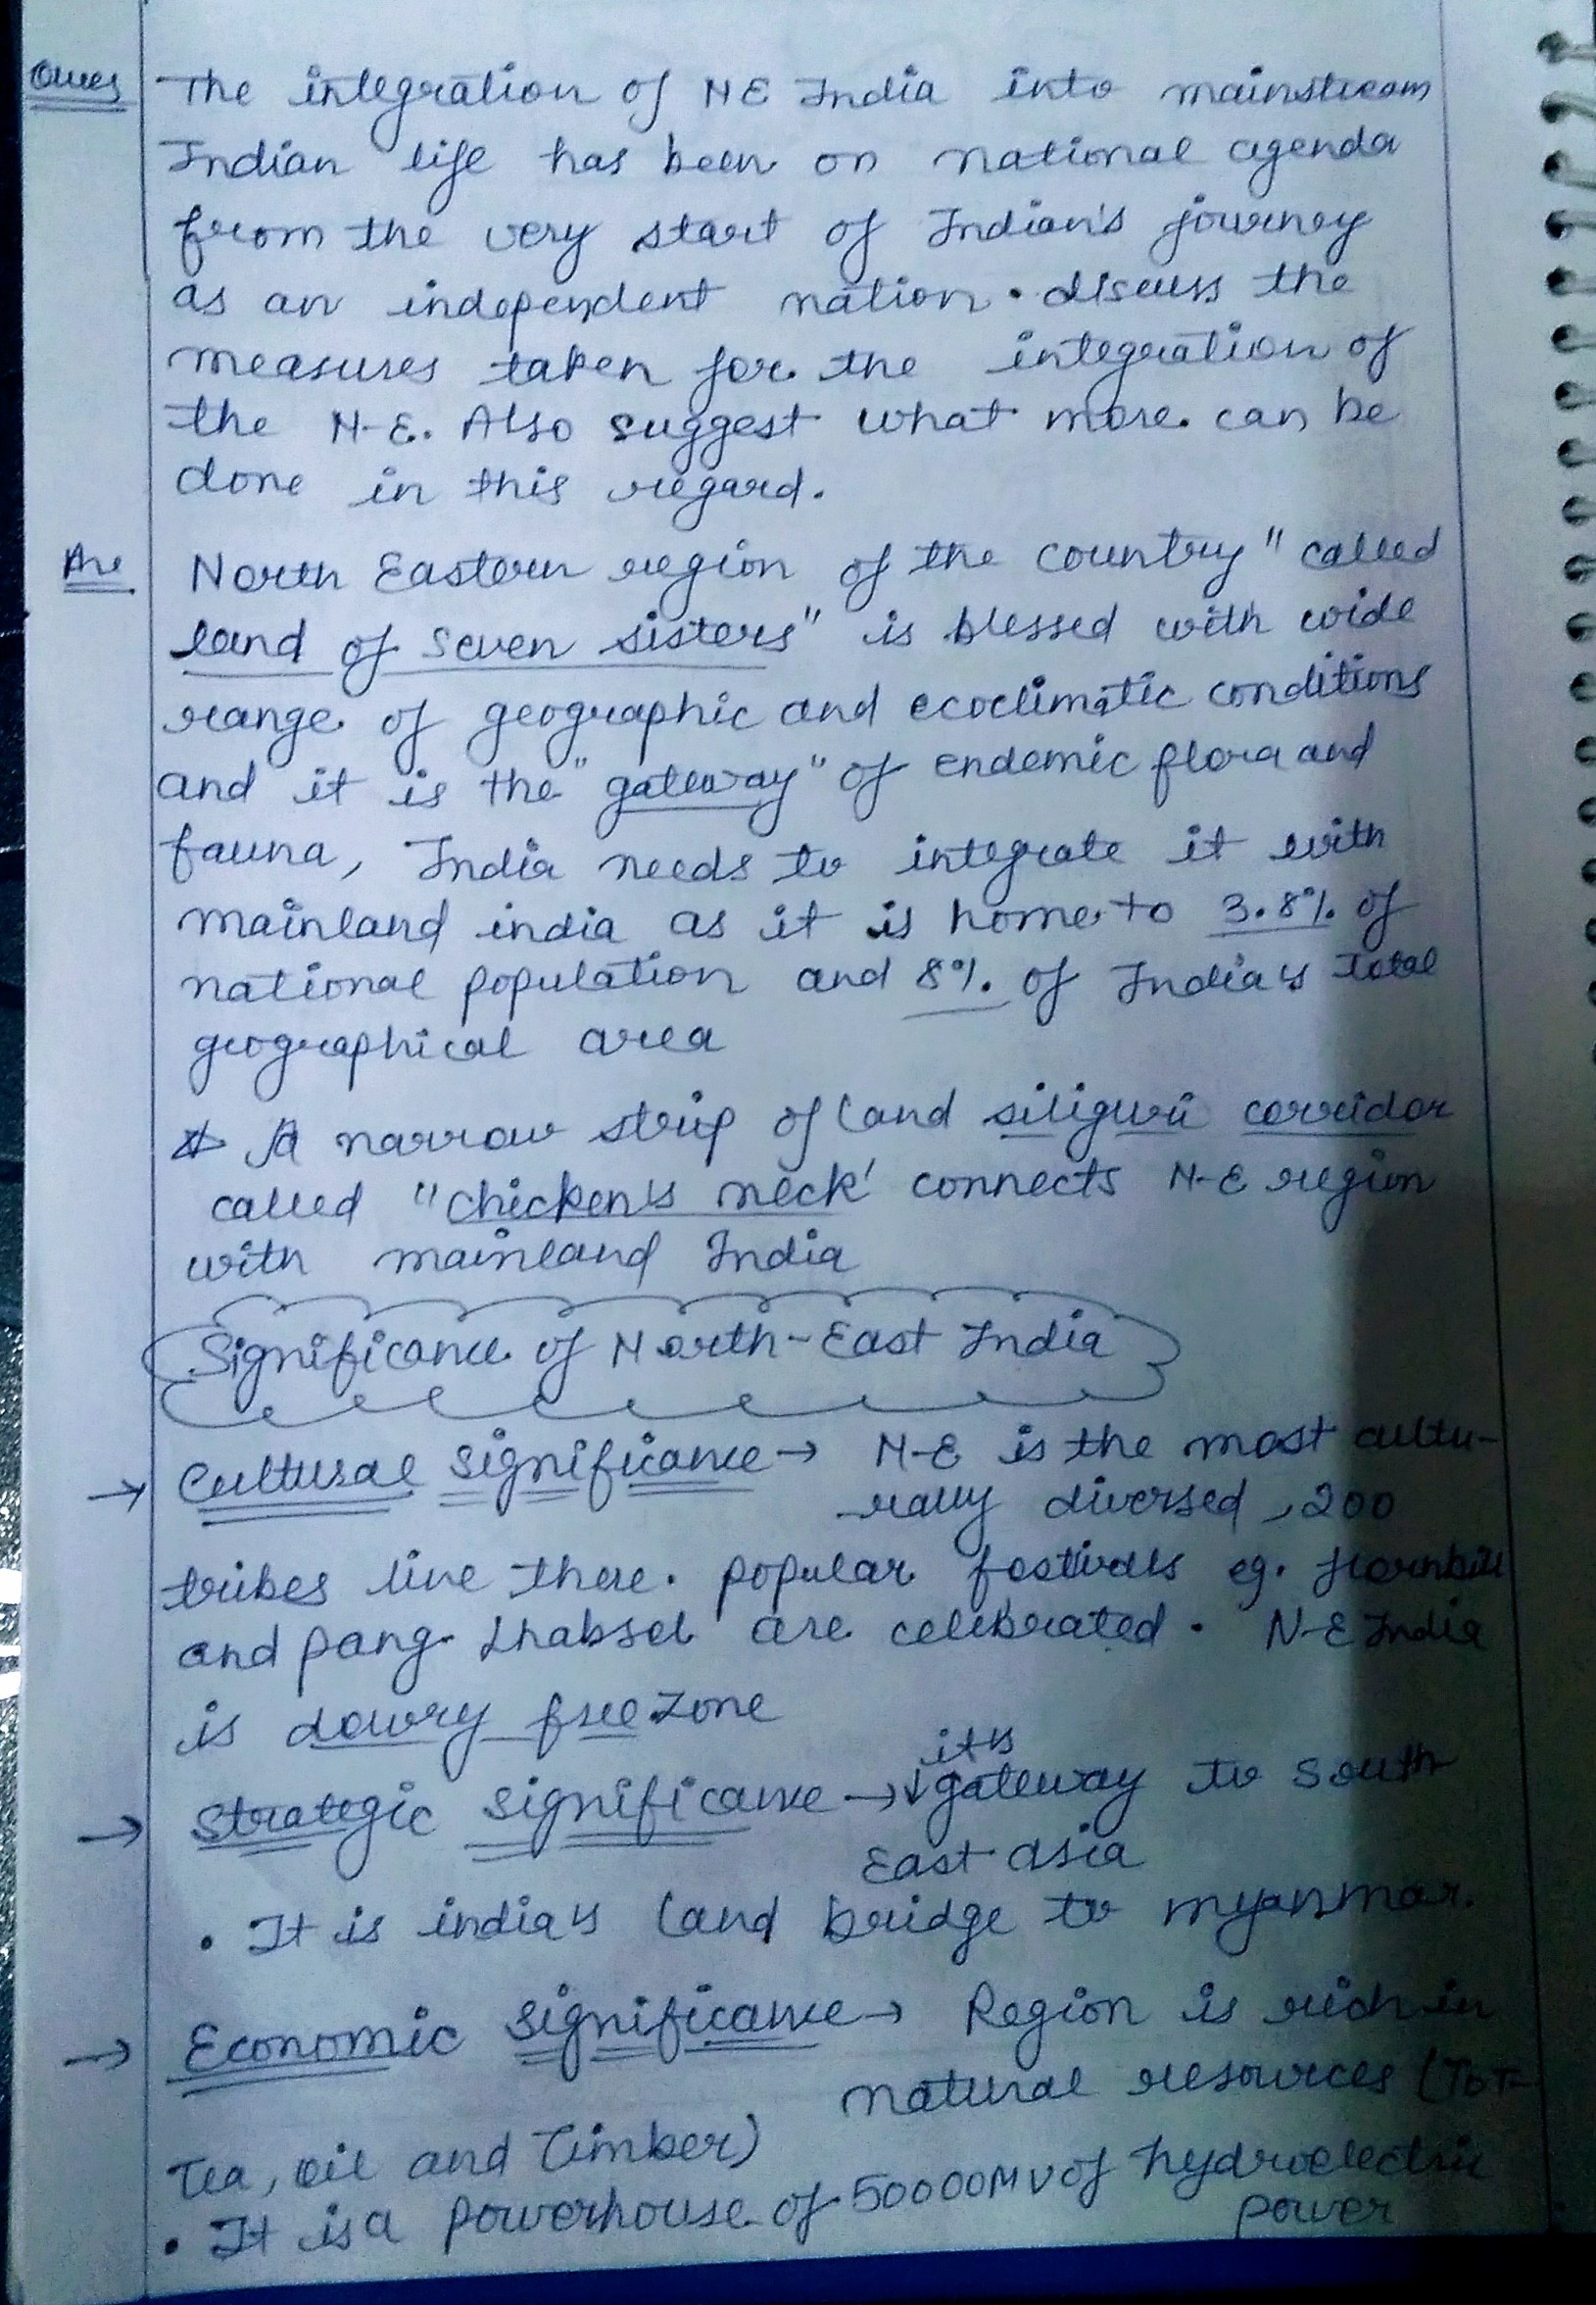 Ques The integration of NE India into mainstream
Indian life has been on national agenda
from the very start of Indian's journey
as an independent nation. discuss the
measures taken for the integration of
the N-E. Also suggest what more can be
done in this regard.
Ans North Eastern region of the country "called
land of seven sisters" is blessed with wide
range of geographic and ecoclimatic conditions
and it is the "gateway" of endemic flora and
fauna, India needs to integrate it with
mainland india as it is home to 3.8% of
national population and 8% of India's total
geographical area
A narrow strip of land siliguri corridor
called "chicken's neck' connects N-E region
with mainland India
Significance of North-East India
→ Cultural significance → N-E is the most cultu-
-rally diversed, 200
tribes live there. popular festivals eg. Hornbill
and pang Lhabsol are celebrated. N-E India
is dowry free zone
it's
→ Strategic significance → gateway to south
East asia
• It is india's land bridge to myanmar.
→ Economic significance → Region is rich in
natural resources (TOT-
Tea, oil and Timber)
• It is a powerhouse of 50000MV of hydroelectric
power